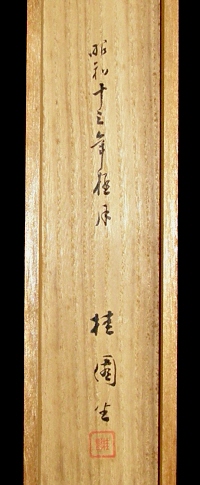 昭和十三年極月
桂園生